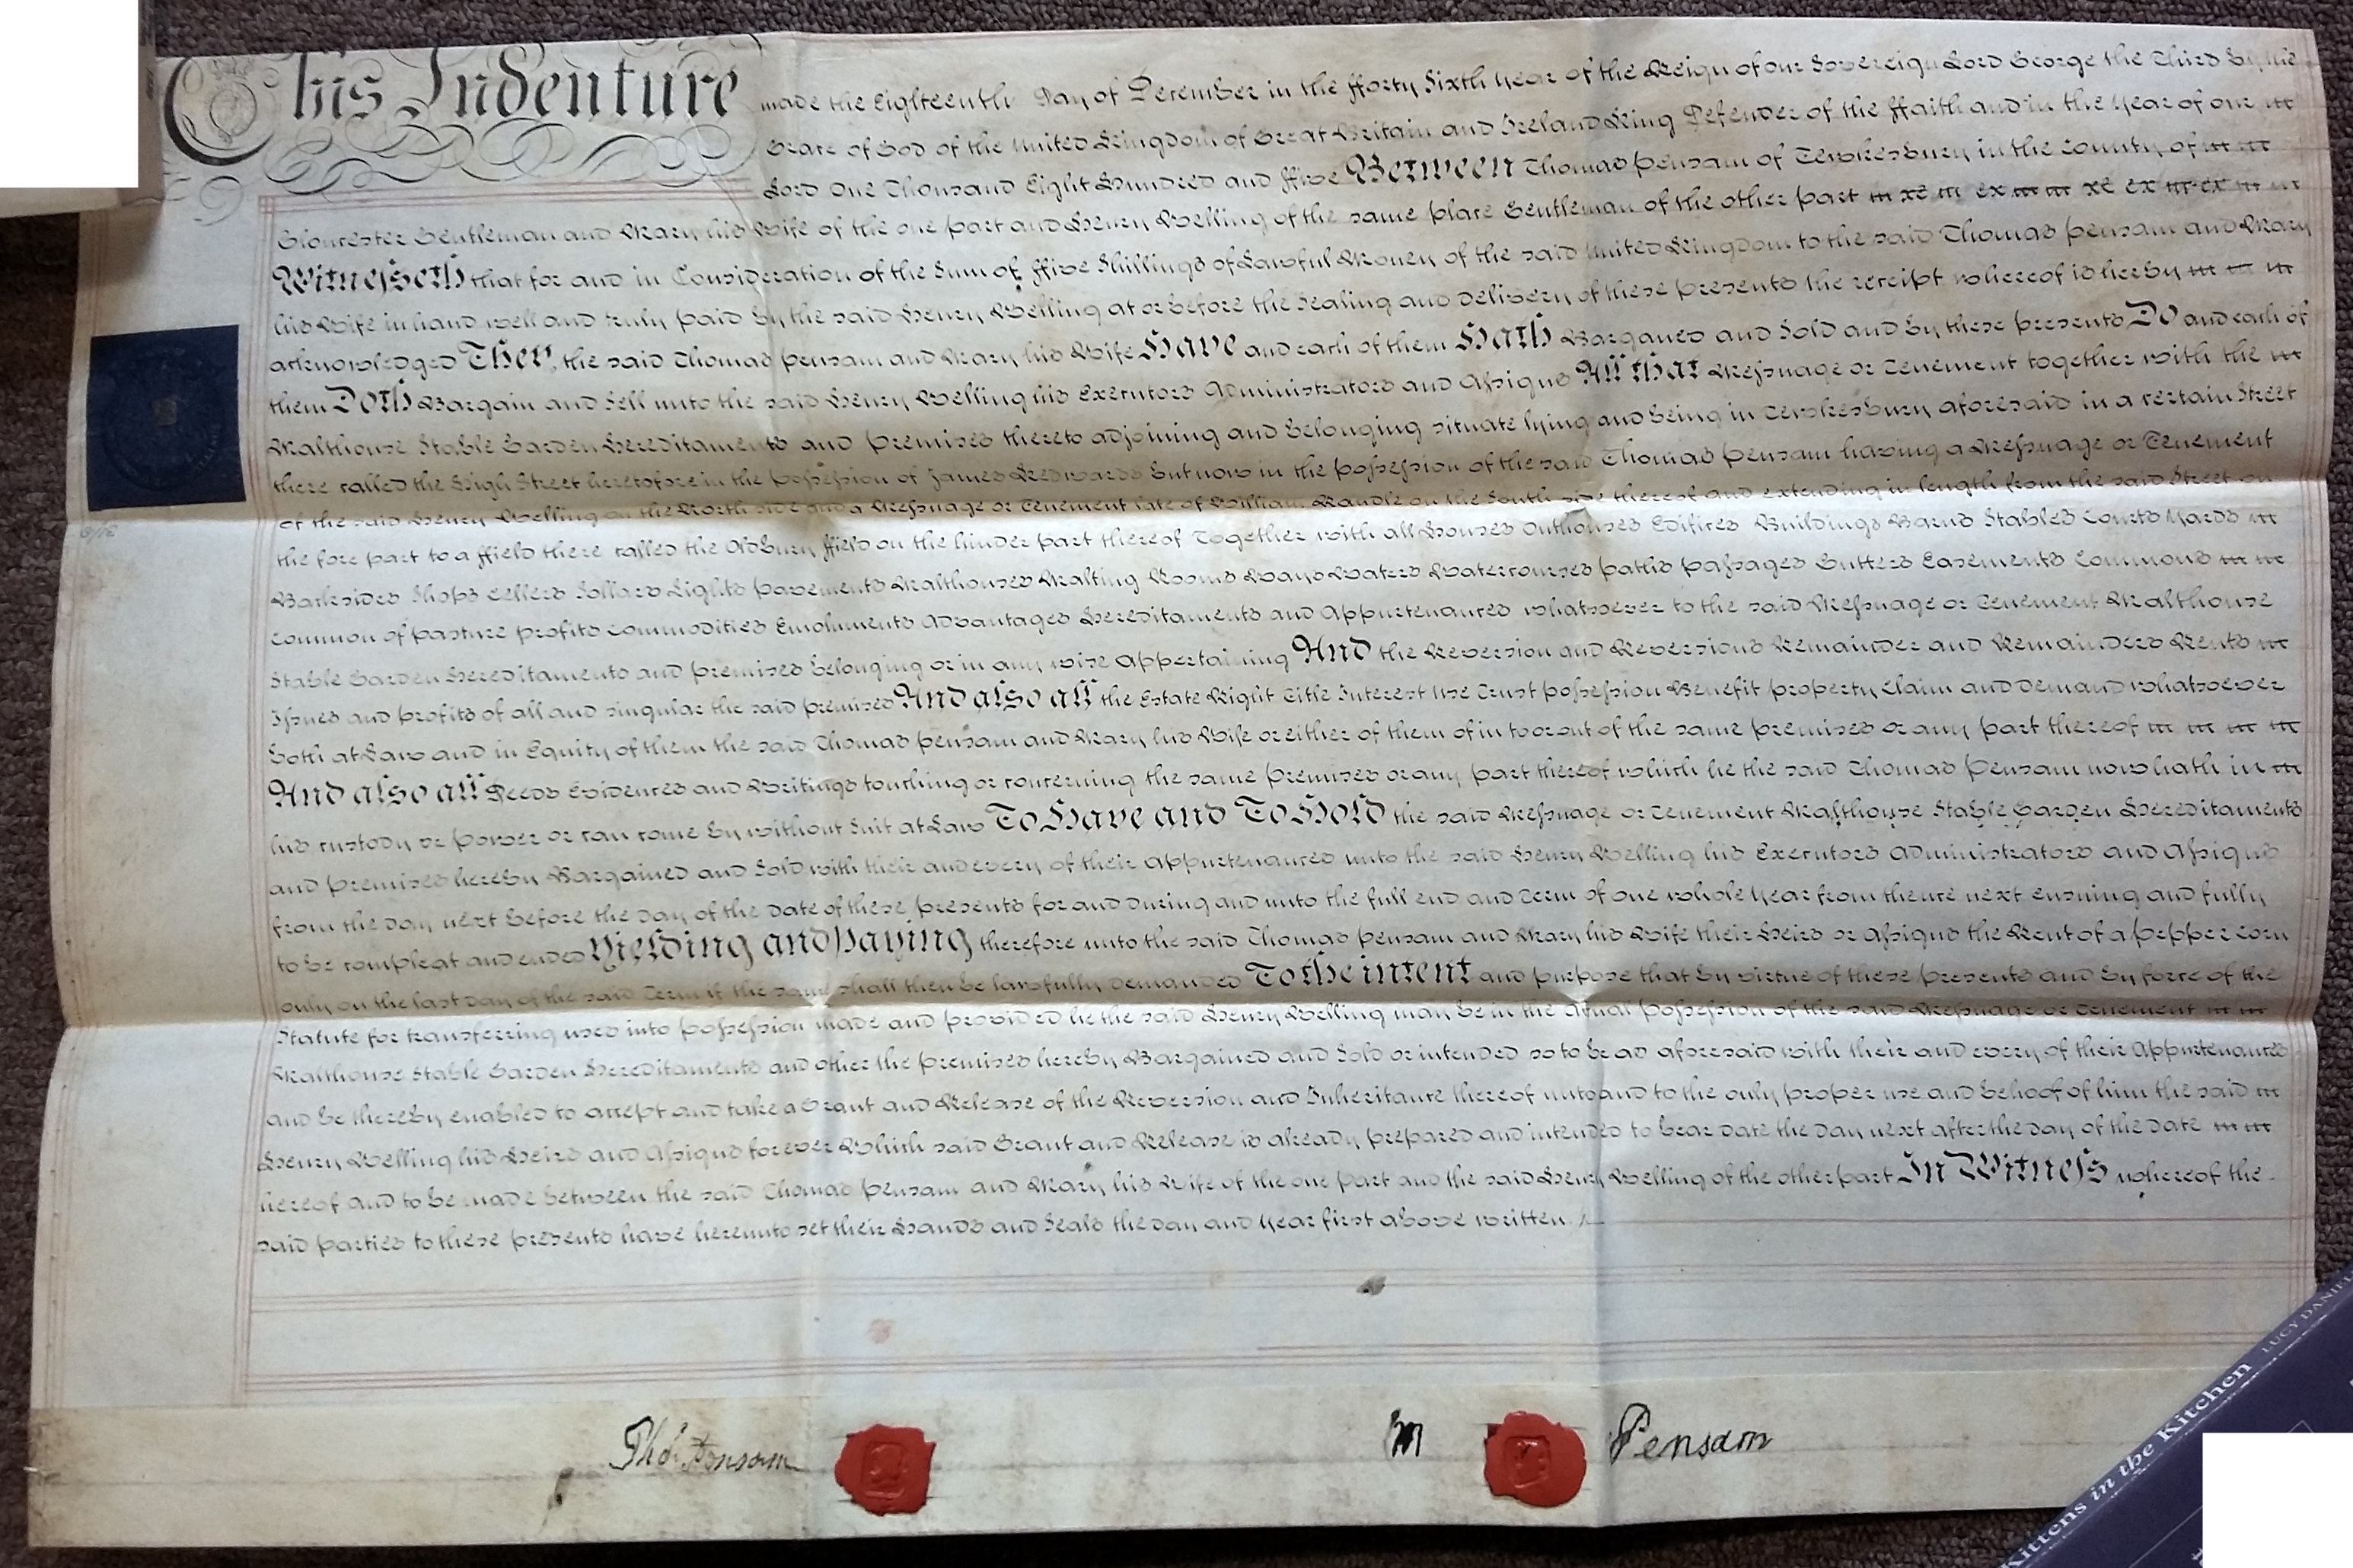 This Indenture made the Eighteenth Day of December in the fforty Sixth Year of the Reign of our Sovereign Lord George the Third by the
Grace of God of the United Kingdom of Great Britain and Ireland King Defender of the ffaith and in the Year of our
Lord One Thousand Eight Hundred and ffive Between Thomas Pensam of Tewkesbury in the County of
Gloucester Gentleman and Mary his Wife of the one part and Henry Welling of the same place Gentleman of the other part
Witnesseth that for and in Consideration of the Sum of ffive Shillings of Lawful Money of the said United Kingdom to the said Thomas Pensam and Mary
his Wife in hand well and truly paid by the said Henry Welling at or before the Sealing and delivery of these presents the receipt whereof is hereby
acknowledged They the said Thomas Pensam and Mary his Wife Have and each of them Hath Bargained and Sold and by these presents Do and each of
them Doth Bargain and Sell unto the said Henry Welling his Executors Administrators and Assigns All that Messuage or Tenement together with the
Malthouse Stable Garden Hereditaments and premises thereto adjoining and belonging situate lying and being in Tewkesbury aforesaid in a certain Street
there called the High Street heretofore in the possession of James Kedwards but now in the possession of the said Thomas Pensam having a Messuage or Tenement
of the said Henry Welling on the North side and a Messuage or Tenement late of William Randle on the South side thereof and extending in length from the said Street on
the fore part to a ffield there called the Oldbury ffield on the hinder part thereof Together with all Houses Outhouses Edifices Buildings Barns Stables Courts Yards
Backsides Shops Cellers Sollars Lights pavements Malthouses Malting Rooms Ways Waters Watercourses paths passages Gutters Easements Commons
Common of pasture profits commodities Emoluments Advantages Hereditaments and Appurtenances whatsoever to the said Messuage or Tenement Malthouse
Stable Garden Hereditaments and premises belonging or in any wise appertaining And the Reversion and Reversions Remainder and Remainders Rents
Issues and profits of all and singular the said premises And also all the Estate Right Title Interest Use Trust possession Benefit property Claim and Demand whatsoever
both at Law and in Equity of them the said Thomas Pensam and Mary his Wife or either of them of in to or out of the same premises or any part thereof
And also all Deeds Evidences and Writings touching or concerning the same premises or any part thereof which he the said Thomas Pensam now hath in
his custody or power or can come by without Suit at Law To Have and To Hold the said Messuage or Tenement Malthouse Stable Garden Hereditaments
and premises hereby Bargained and Sold with their and every of their Appurtenances unto the said Henry Welling his Executors Administrators and Assigns
from the day next before the day of the date of these presents for and during and unto the full end and Term of one whole Year from thence next ensuing and fully
to be compleat and ended Yielding and Paying therefore unto the said Thomas Pensam and Mary his Wife their Heirs or Assigns the Rent of a pepper corn
only on the last day of the said Term if the same shall then be lawfully demanded To the intent and purpose that by virtue of these presents and by force of the
Statute for transferring uses into possession made and provided he the said Henry Welling may be in the Actual possession of the said Messuage or Tenement
Malthouse Stable Garden Hereditaments and other the premises hereby Bargained and Sold or intended so to be as aforesaid with their and every of their Appurtenances
and be thereby enabled to accept and take a Grant and Release of the Reversion and Inheritance thereof unto and to the only proper use and behoof of him the said
Henry Welling his Heirs and Assigns forever Which said Grant and Release is already prepared and intended to bear date the day next after the day of the date
hereof and to be made between the said Thomas Pensam and Mary his Wife of the one part and the said Henry Welling of the other part In Witness whereof the
said parties to these presents have hereunto set their Hands and Seals the day and Year first above written
Tho: Pensam
M Pensam
Kittens in the Kitchen LUCY DANIEL